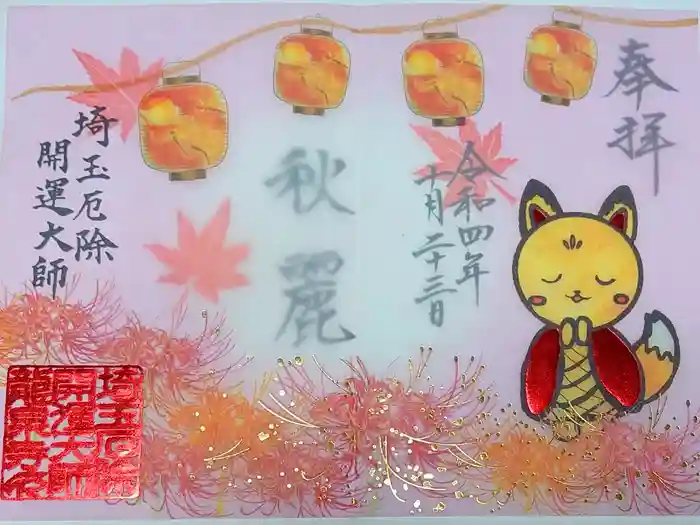 奉拝
令和四年
十月二十三日
秋麗
埼玉厄除
開運大師
埼玉厄除
開運大師
龍泉寺印